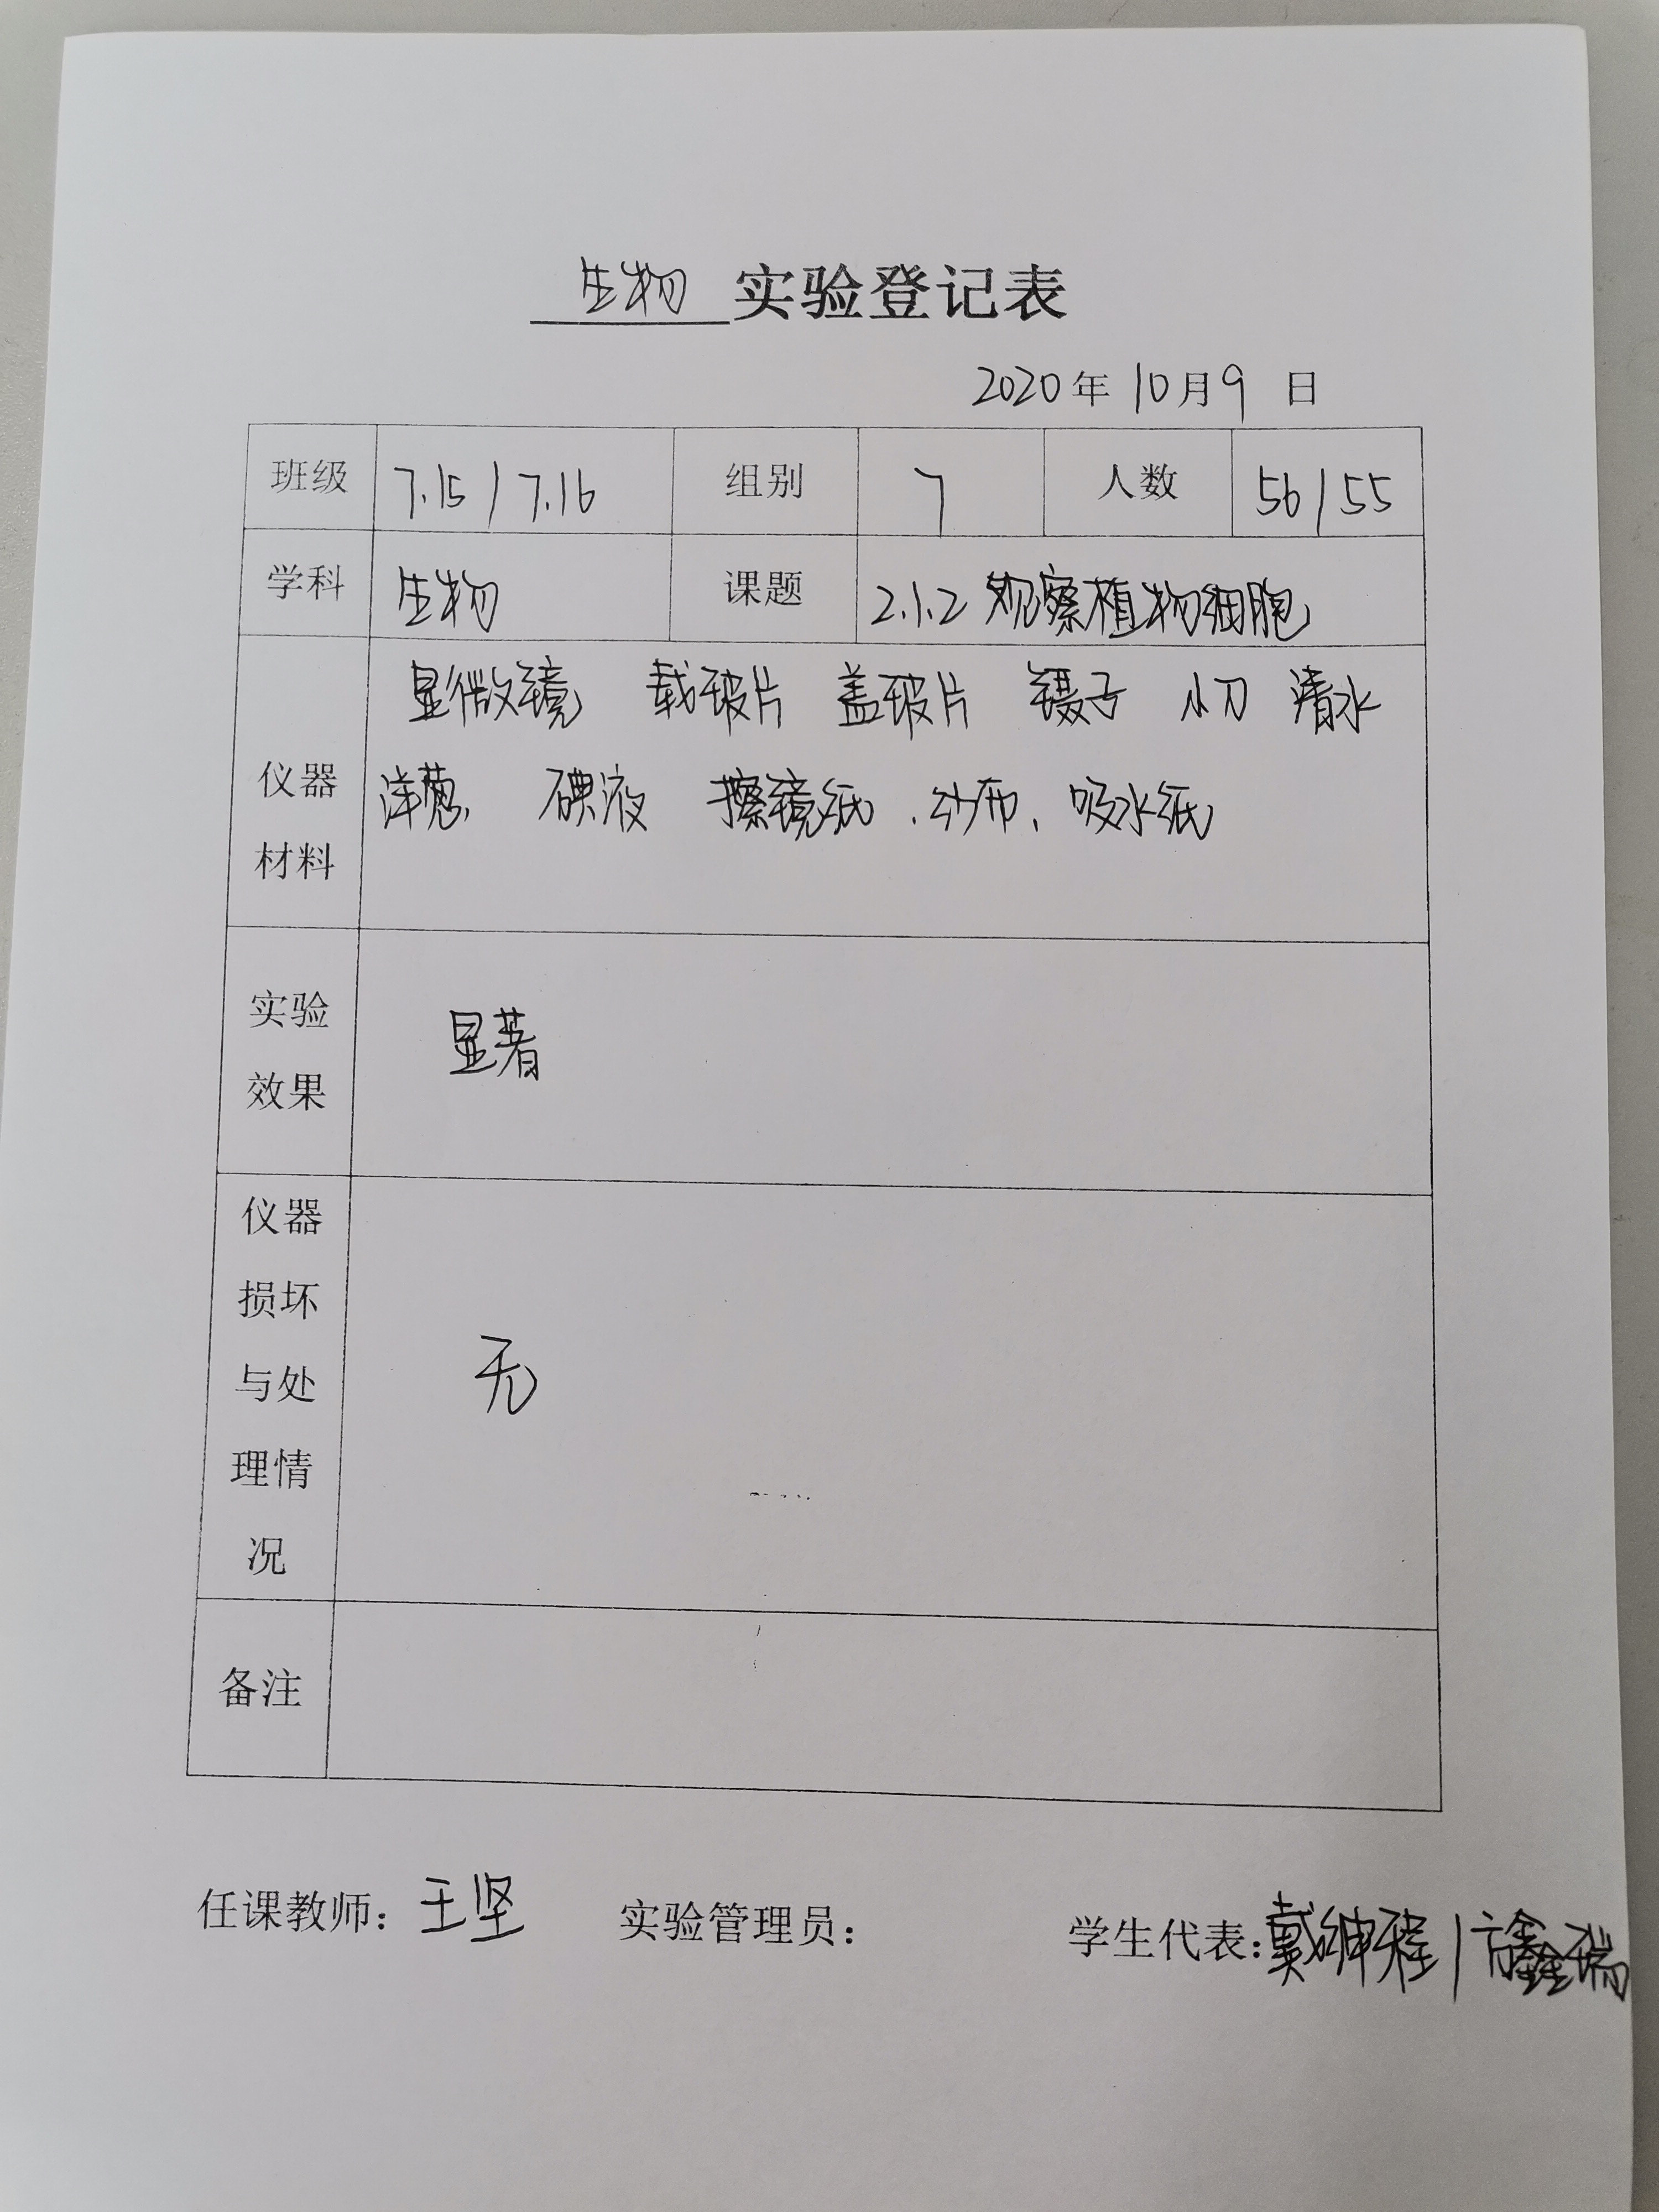 生物 实验登记表
2020年10月9日
班级 7.15 / 7.16 组别 7 人数 56 / 55
学科 生物 课题 2.1.2 观察植物细胞
显微镜 载玻片 盖玻片 镊子 小刀 清水
仪器 洋葱、 碘液 擦镜纸 、纱布、吸水纸
材料
实验 显著
效果
仪器
损坏
与处 无
理情
况
备注
任课教师: 王坚 实验管理员: 学生代表: 戴绅程 / 方鑫瑞